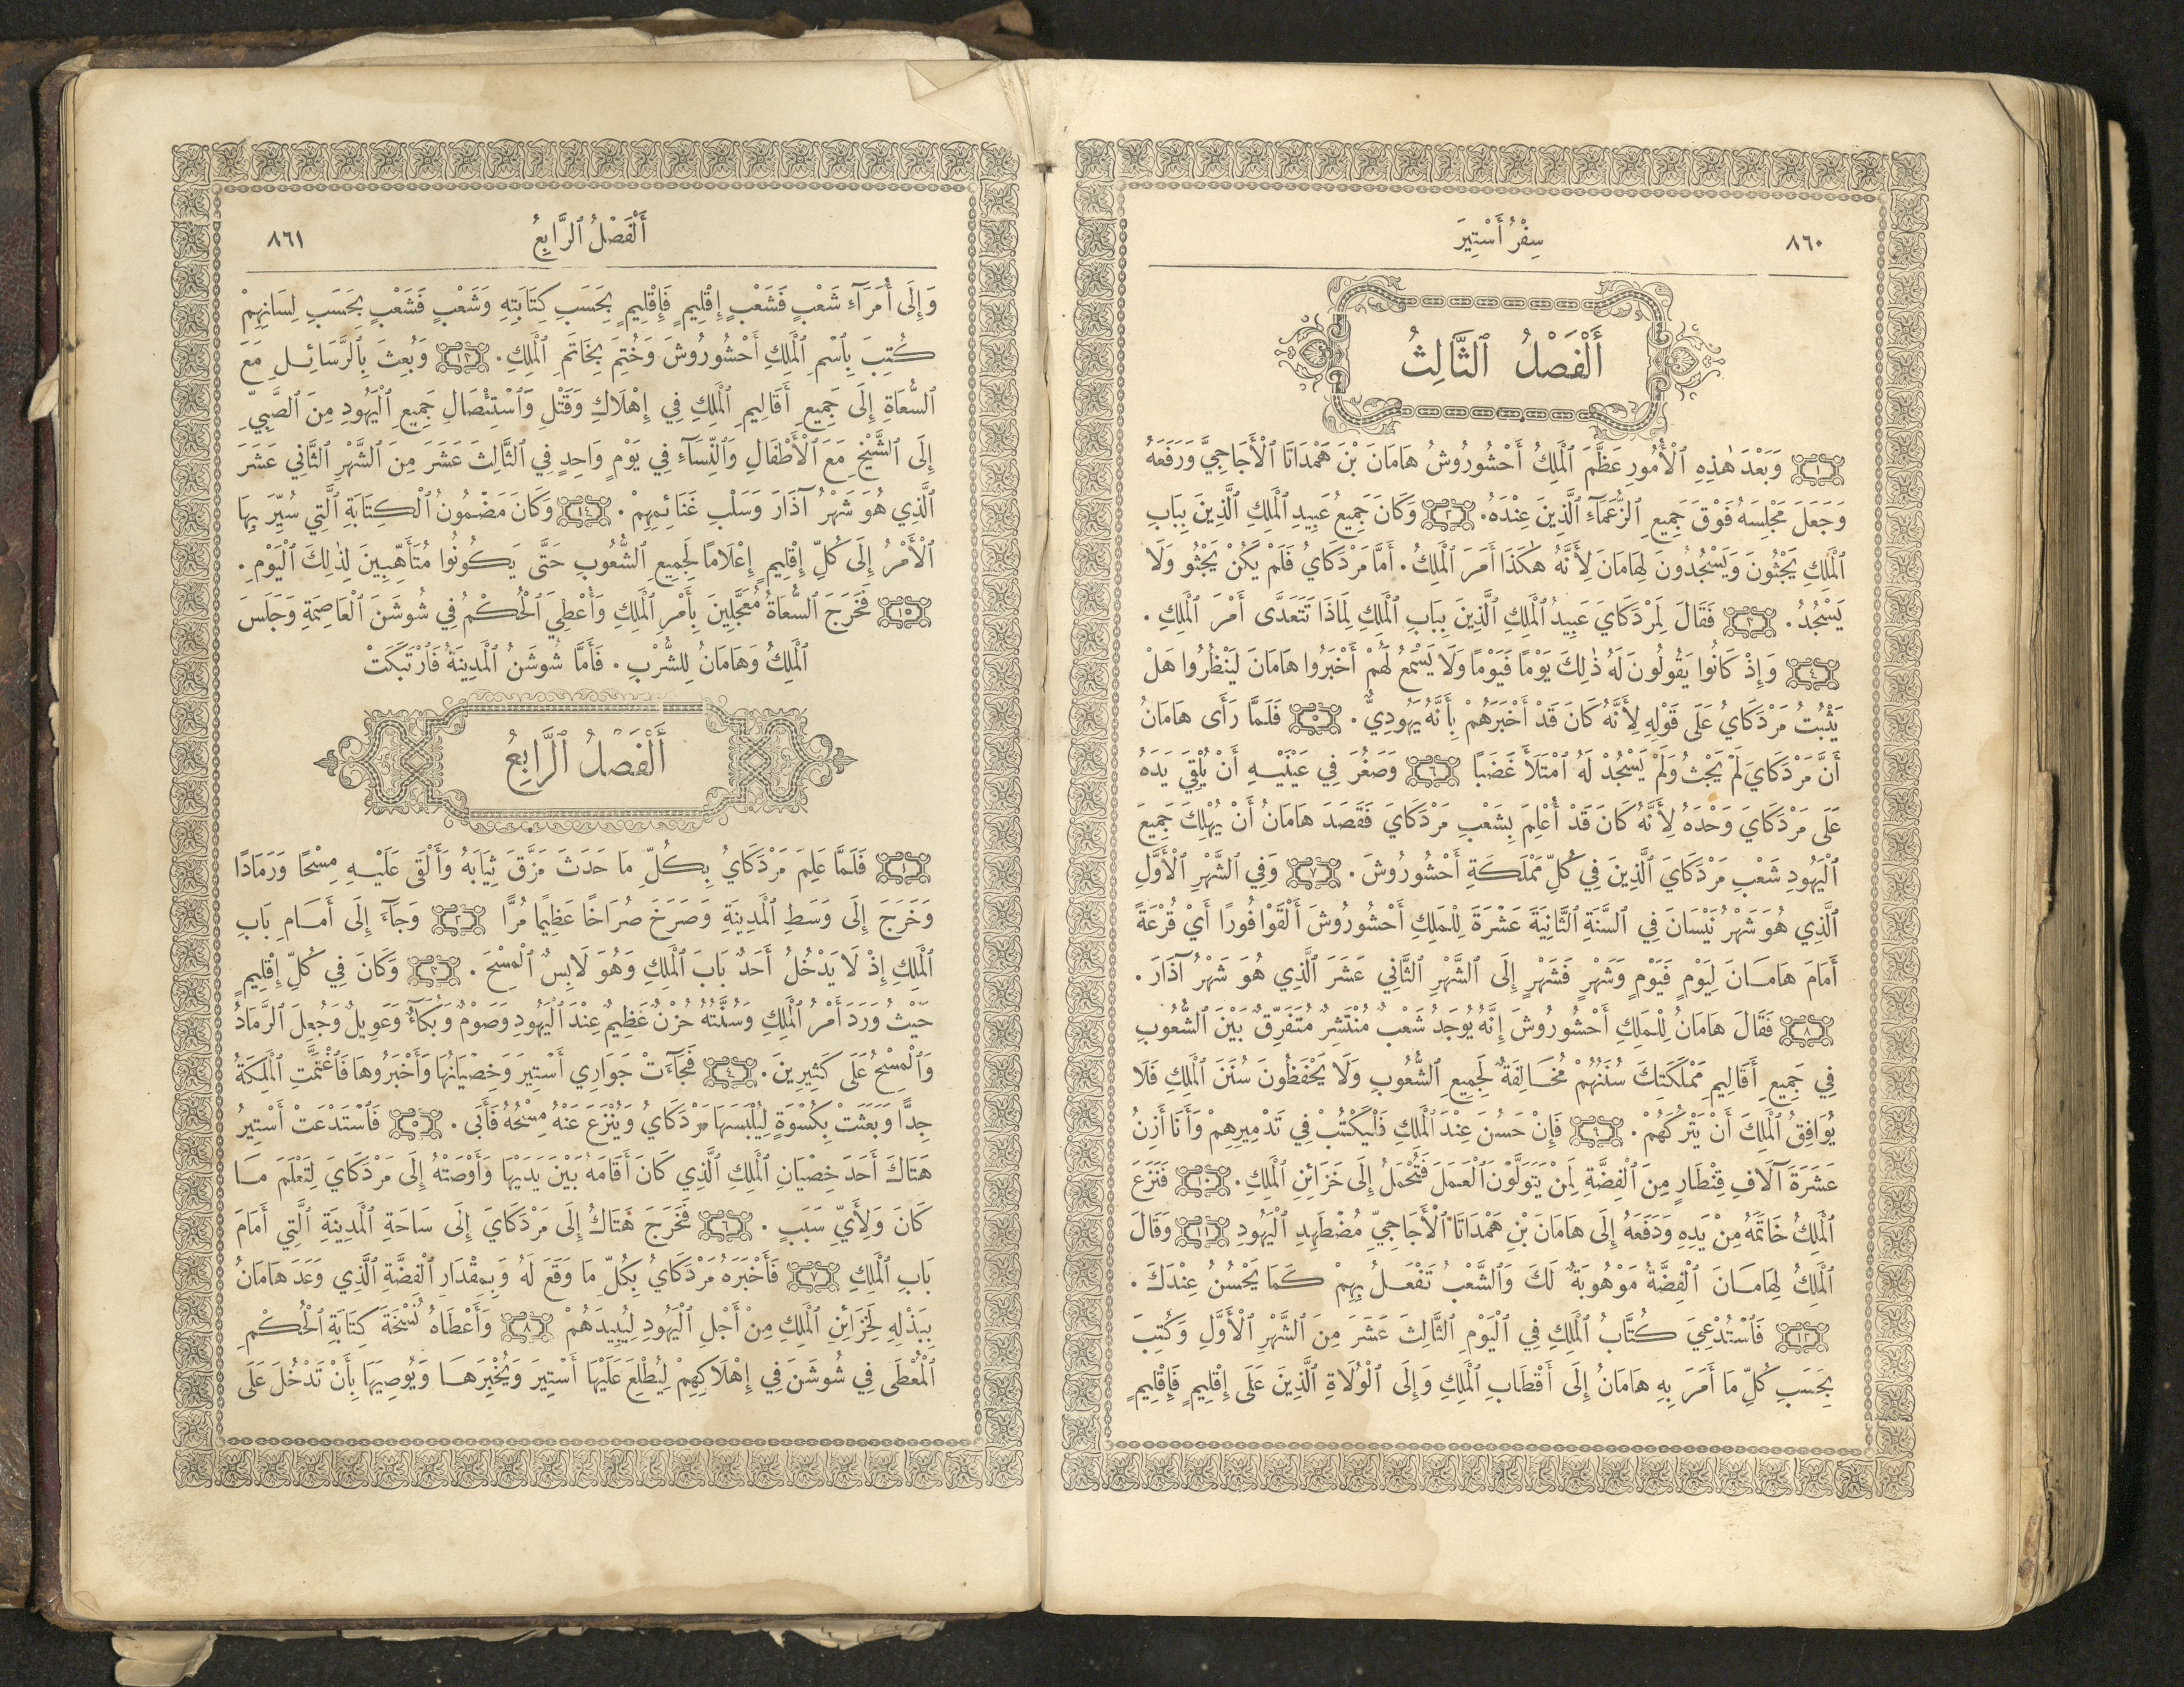 ٨٦٠
سِفْرُ أَسْتِيرَ
أَلْفَصْلُ ٱلثَّالِثُ
١ وَبَعْدَ هٰذِهِ ٱلْأُمُورِ عَظَّمَ ٱلْمَلِكُ أَحْشُورُوشُ هَامَانَ بْنَ هَمْدَاتَا ٱلْأَجَاجِيَّ وَرَفَعَهُ
وَجَعَلَ مَجْلِسَهُ فَوْقَ جَمِيعِ ٱلزُّعَمَآءِ ٱلَّذِينَ عِنْدَهُ. ٢ وَكَانَ جَمِيعُ عَبِيدِ ٱلْمَلِكِ ٱلَّذِينَ بِبَابِ
ٱلْمَلِكِ يَجْثُونَ وَيَسْجُدُونَ لِهَامَانَ لِأَنَّهُ هٰكَذَا أَمَرَ ٱلْمَلِكُ. أَمَّا مَرْدَكَايُ فَلَمْ يَكُنْ يَجْثُو وَلَا
يَسْجُدُ. ٣ فَقَالَ لِمَرْدَكَايَ عَبِيدُ ٱلْمَلِكِ ٱلَّذِينَ بِبَابِ ٱلْمَلِكِ لِمَاذَا تَتَعَدَّى أَمْرَ ٱلْمَلِكِ.
٤ وَإِذْ كَانُوا يَقُولُونَ لَهُ ذٰلِكَ يَوْمًا فَيَوْمًا وَلَا يَسْمَعُ لَهُمْ أَخْبَرُوا هَامَانَ لِيَنْظُرُوا هَلْ
يَثْبُتُ مَرْدَكَايُ عَلَى قَوْلِهِ لِأَنَّهُ كَانَ قَدْ أَخْبَرَهُمْ بِأَنَّهُ يَهُودِيٌّ. ٥ فَلَمَّا رَأَى هَامَانُ
أَنَّ مَرْدَكَايَ لَمْ يَجْثُ وَلَمْ يَسْجُدْ لَهُ ٱمْتَلَأَ غَضَبًا ٦ وَصَغُرَ فِي عَيْنَيْهِ أَنْ يُلْقِيَ يَدَهُ
عَلَى مَرْدَكَايَ وَحْدَهُ لِأَنَّهُ كَانَ قَدْ أُعْلِمَ بِشَعْبِ مَرْدَكَايَ فَقَصَدَ هَامَانُ أَنْ يُهْلِكَ جَمِيعَ
ٱلْيَهُودِ شَعْبِ مَرْدَكَايَ ٱلَّذِينَ فِي كُلِّ مَمْلَكَةِ أَحْشُورُوشَ. ٧ وَفِي ٱلشَّهْرِ ٱلْأَوَّلِ
ٱلَّذِي هُوَ شَهْرُ نَيْسَانَ فِي ٱلسَّنَةِ ٱلثَّانِيَةَ عَشْرَةَ لِلْمَلِكِ أَحْشُورُوشَ أَلْقَوْا فُورًا أَيْ قُرْعَةً
أَمَامَ هَامَانَ لِيَوْمٍ فَيَوْمٍ وَشَهْرٍ فَشَهْرٍ إِلَى ٱلشَّهْرِ ٱلثَّانِي عَشَرَ ٱلَّذِي هُوَ شَهْرُ آذَارَ.
٨ فَقَالَ هَامَانُ لِلْمَلِكِ أَحْشُورُوشَ إِنَّهُ يُوجَدُ شَعْبٌ مُنْتَشِرٌ مُتَفَرِّقٌ بَيْنَ ٱلشُّعُوبِ
فِي جَمِيعِ أَقَالِيمِ مَمْلَكَتِكَ سُنَنُهُمْ مُخَالِفَةٌ لِجَمِيعِ ٱلشُّعُوبِ وَلَا يَحْفَظُونَ سُنَنَ ٱلْمَلِكِ فَلَا
يُوَافِقُ ٱلْمَلِكَ أَنْ يَتْرُكَهُمْ. ٩ فَإِنْ حَسُنَ عِنْدَ ٱلْمَلِكِ فَلْيَكْتُبْ فِي تَدْمِيرِهِمْ وَأَنَا أَزِنُ
عَشَرَةَ آلَافِ قِنْطَارٍ مِنَ ٱلْفِضَّةِ لِمَنْ يَتَوَلَّوْنَ ٱلْعَمَلَ فَتُحْمَلُ إِلَى خَزَائِنِ ٱلْمَلِكِ. ١٠ فَنَزَعَ
ٱلْمَلِكُ خَاتَمَهُ مِنْ يَدِهِ وَدَفَعَهُ إِلَى هَامَانَ بْنِ هَمْدَاتَا ٱلْأَجَاجِيِّ مُضْطَهِدِ ٱلْيَهُودِ ١١ وَقَالَ
ٱلْمَلِكُ لِهَامَانَ ٱلْفِضَّةُ مَوْهُوبَةٌ لَكَ وَٱلشَّعْبُ تَفْعَلُ بِهِمْ كَمَا يَحْسُنُ عِنْدَكَ.
١٢ فَٱسْتُدْعِيَ كُتَّابُ ٱلْمَلِكِ فِي ٱلْيَوْمِ ٱلثَّالِثَ عَشَرَ مِنَ ٱلشَّهْرِ ٱلْأَوَّلِ وَكُتِبَ
بِحَسَبِ كُلِّ مَا أَمَرَ بِهِ هَامَانُ إِلَى أَقْطَابِ ٱلْمَلِكِ وَإِلَى ٱلْوُلَاةِ ٱلَّذِينَ عَلَى إِقْلِيمٍ فَإِقْلِيمٍ
أَلْفَصْلُ ٱلرَّابِعُ
٨٦١
وَإِلَى أُمَرَآءِ شَعْبٍ فَشَعْبٍ إِقْلِيمٍ فَإِقْلِيمٍ بِحَسَبِ كِتَابَتِهِ وَشَعْبٍ فَشَعْبٍ بِحَسَبِ لِسَانِهِمْ
كُتِبَ بِٱسْمِ ٱلْمَلِكِ أَحْشُورُوشَ وَخُتِمَ بِخَاتَمِ ٱلْمَلِكِ. ١٣ وَبُعِثَ بِٱلرَّسَائِلِ مَعَ
ٱلسُّعَاةِ إِلَى جَمِيعِ أَقَالِيمِ ٱلْمَلِكِ فِي إِهْلَاكِ وَقَتْلِ وَٱسْتِئْصَالِ جَمِيعِ ٱلْيَهُودِ مِنَ ٱلصَّبِيِّ
إِلَى ٱلشَّيْخِ مَعَ ٱلْأَطْفَالِ وَٱلنِّسَآءِ فِي يَوْمٍ وَاحِدٍ فِي ٱلثَّالِثَ عَشَرَ مِنَ ٱلشَّهْرِ ٱلثَّانِي عَشَرَ
ٱلَّذِي هُوَ شَهْرُ آذَارَ وَسَلْبِ غَنَائِمِهِمْ. ١٤ وَكَانَ مَضْمُونُ ٱلْكِتَابَةِ ٱلَّتِي سُيِّرَ بِهَا
ٱلْأَمْرُ إِلَى كُلِّ إِقْلِيمٍ إِعْلَامًا لِجَمِيعِ ٱلشُّعُوبِ حَتَّى يَكُونُوا مُتَأَهِّبِينَ لِذٰلِكَ ٱلْيَوْمِ.
١٥ فَخَرَجَ ٱلسُّعَاةُ مُعَجَّلِينَ بِأَمْرِ ٱلْمَلِكِ وَأُعْطِيَ ٱلْحُكْمُ فِي شُوشَنَ ٱلْعَاصِمَةِ وَجَلَسَ
ٱلْمَلِكُ وَهَامَانُ لِلشُّرْبِ. فَأَمَّا شُوشَنُ ٱلْمَدِينَةُ فَٱرْتَبَكَتْ
أَلْفَصْلُ ٱلرَّابِعُ
١ فَلَمَّا عَلِمَ مَرْدَكَايُ بِكُلِّ مَا حَدَثَ مَزَّقَ ثِيَابَهُ وَأَلْقَى عَلَيْهِ مِسْحًا وَرَمَادًا
وَخَرَجَ إِلَى وَسَطِ ٱلْمَدِينَةِ وَصَرَخَ صُرَاخًا عَظِيمًا مُرًّا ٢ وَجَآءَ إِلَى أَمَامِ بَابِ
ٱلْمَلِكِ إِذْ لَا يَدْخُلُ أَحَدٌ بَابَ ٱلْمَلِكِ وَهُوَ لَابِسٌ ٱلْمِسْحَ. ٣ وَكَانَ فِي كُلِّ إِقْلِيمٍ
حَيْثُ وَرَدَ أَمْرُ ٱلْمَلِكِ وَسُنَّتُهُ حُزْنٌ عَظِيمٌ عِنْدَ ٱلْيَهُودِ وَصَوْمٌ وَبُكَآءٌ وَعَوِيلٌ وَجُعِلَ ٱلرَّمَادُ
وَٱلْمِسْحُ عَلَى كَثِيرِينَ. ٤ فَجَآءَتْ جَوَارِي أَسْتِيرَ وَخِصْيَانُهَا وَأَخْبَرُوهَا فَٱغْتَمَّتِ ٱلْمَلِكَةُ
جِدًّا وَبَعَثَتْ بِكُسْوَةٍ لِيُلْبَسَهَا مَرْدَكَايُ وَيُنْزَعَ عَنْهُ مِسْحُهُ فَأَبَى. ٥ فَٱسْتَدْعَتْ أَسْتِيرُ
هَتَاكَ أَحَدَ خِصْيَانِ ٱلْمَلِكِ ٱلَّذِي كَانَ أَقَامَهُ بَيْنَ يَدَيْهَا وَأَوْصَتْهُ إِلَى مَرْدَكَايَ لِتَعْلَمَ مَا
كَانَ وَلِأَيِّ سَبَبٍ. ٦ فَخَرَجَ هَتَاكُ إِلَى مَرْدَكَايَ إِلَى سَاحَةِ ٱلْمَدِينَةِ ٱلَّتِي أَمَامَ
بَابِ ٱلْمَلِكِ ٧ فَأَخْبَرَهُ مَرْدَكَايُ بِكُلِّ مَا وَقَعَ لَهُ وَبِمِقْدَارِ ٱلْفِضَّةِ ٱلَّذِي وَعَدَ هَامَانُ
بِبَذْلِهِ لِخَزَائِنِ ٱلْمَلِكِ مِنْ أَجْلِ ٱلْيَهُودِ لِيُبِيدَهُمْ ٨ وَأَعْطَاهُ نُسْخَةَ كِتَابَةِ ٱلْحُكْمِ
ٱلْمُعْطَى فِي شُوشَنَ فِي إِهْلَاكِهِمْ لِيُطْلِعَ عَلَيْهَا أَسْتِيرَ وَيُخْبِرَهَا وَيُوصِيَهَا بِأَنْ تَدْخُلَ عَلَى